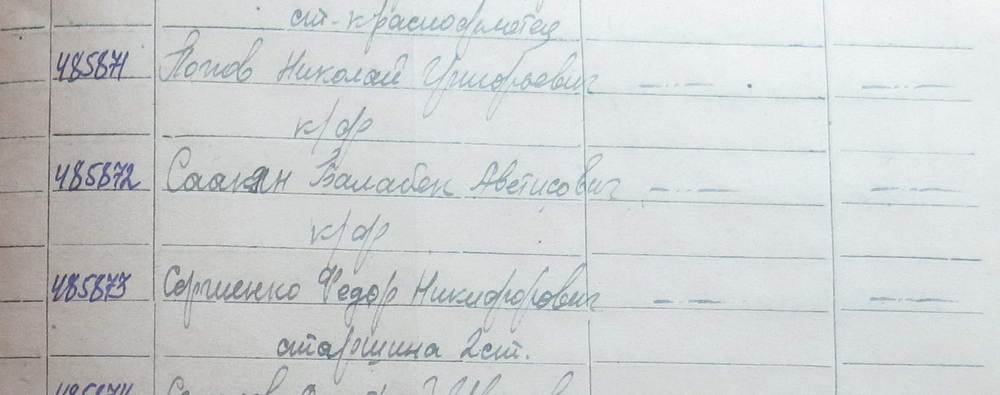 ст. краснофлотец
485871 Попов Николай Григорьевич —·— —·—
к/фр
485872 Саакян Балабек Аветисович —·— —·—
к/фр
485873 Сергиенко Федор Никифорович —·— —·—
старшина 2 ст.
485874